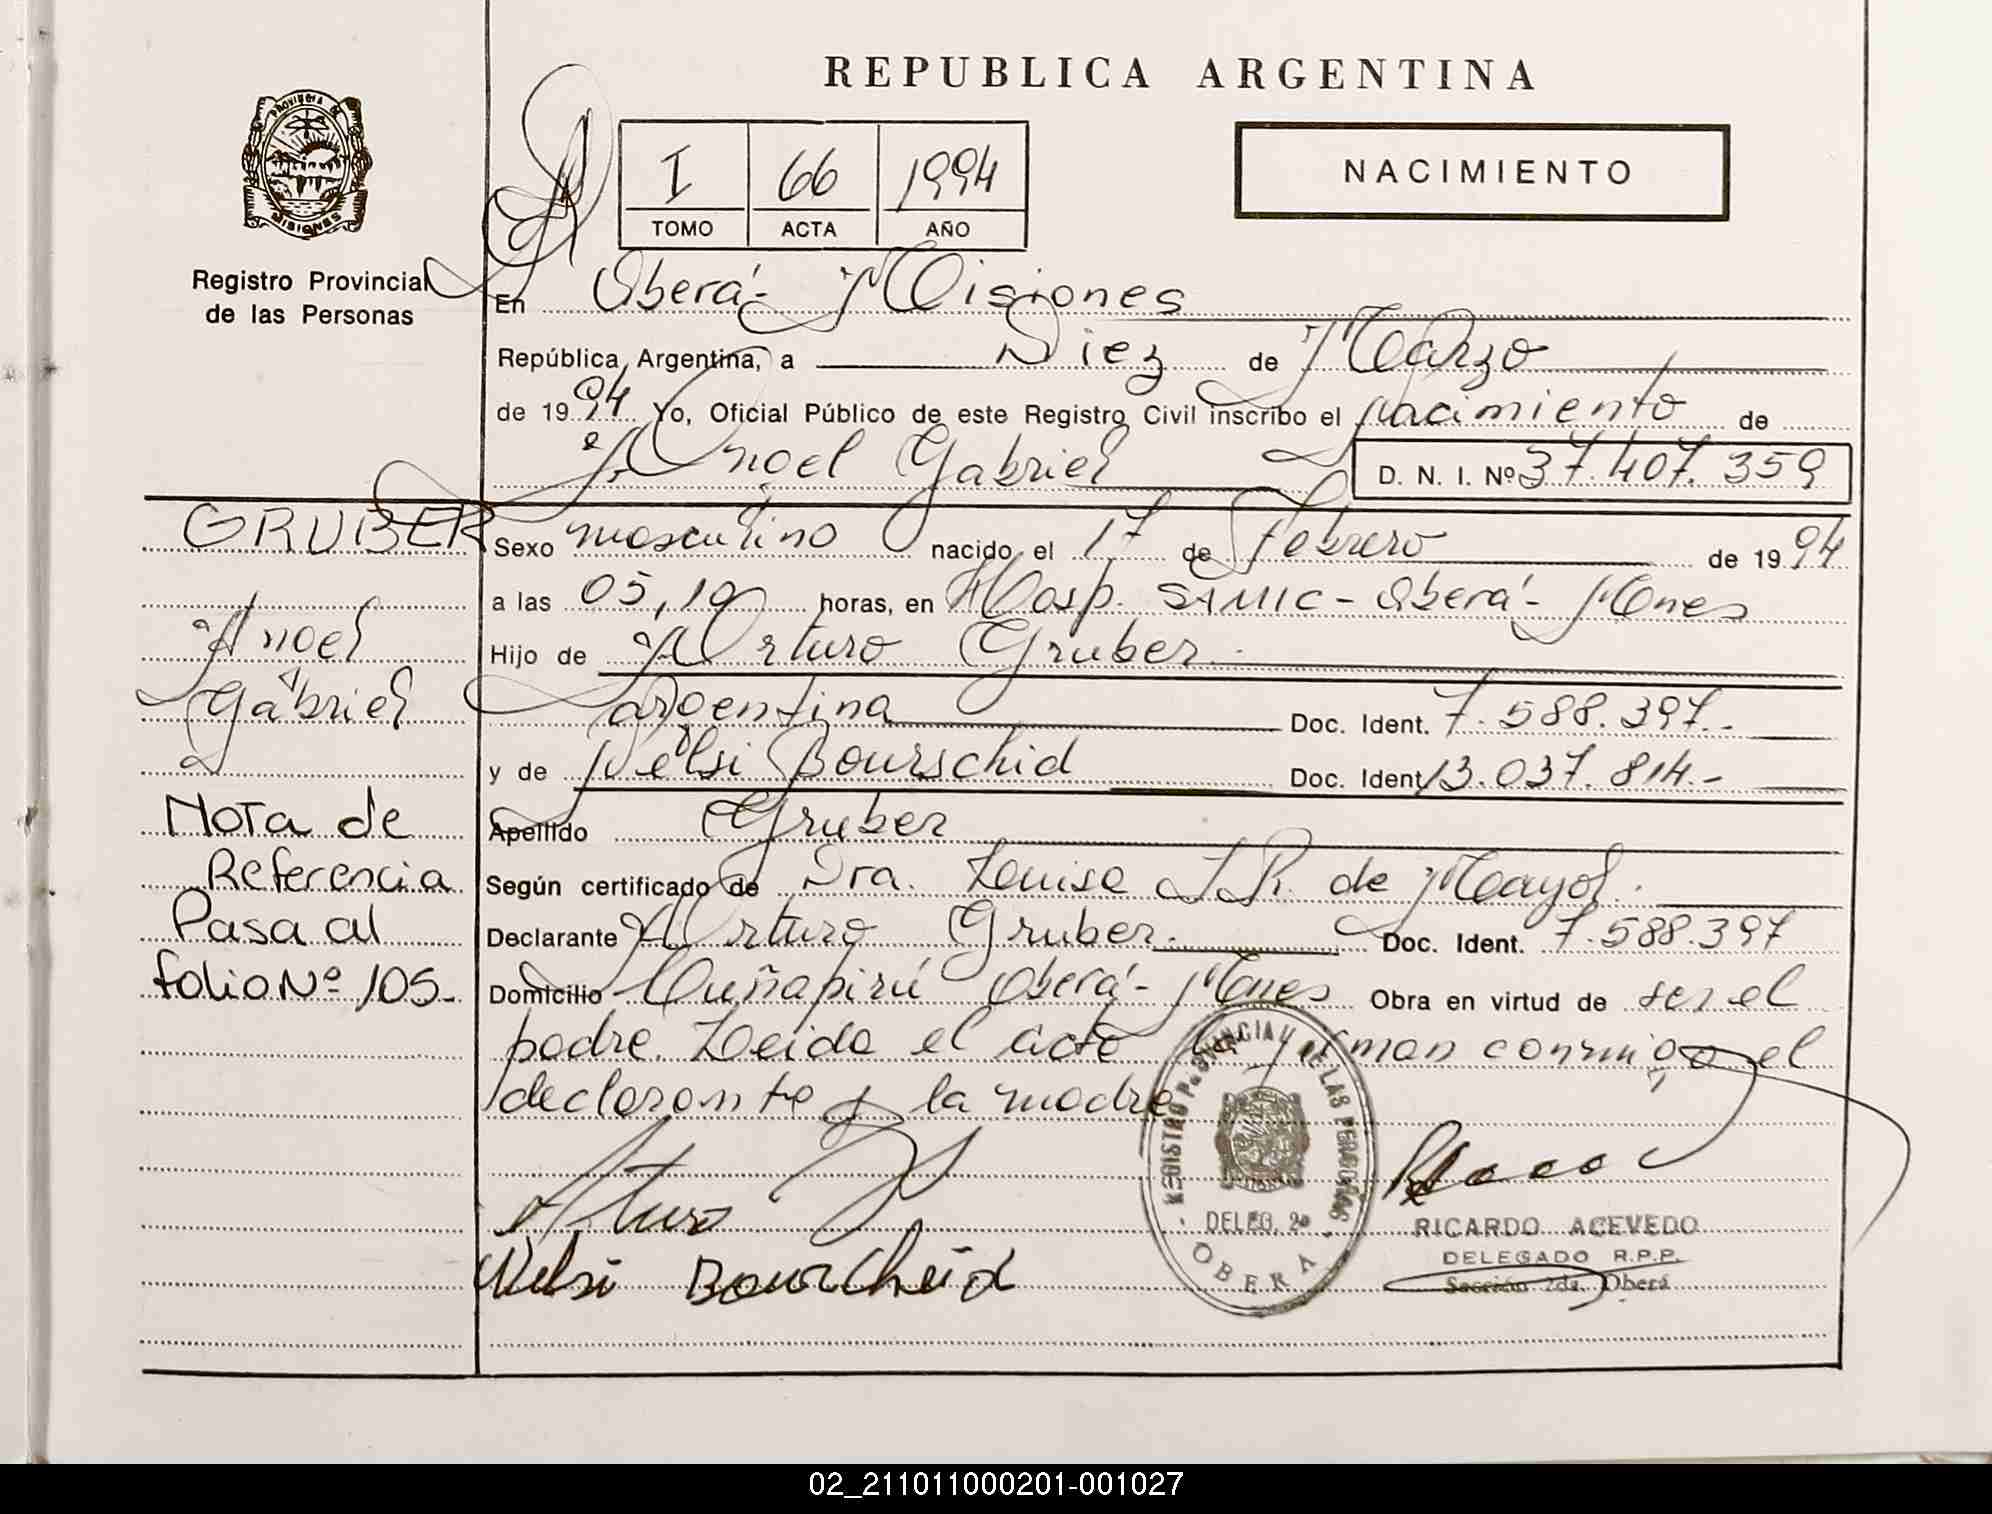 REPUBLICA ARGENTINA
PROVINCIA DE
MISIONES
Registro Provincial
de las Personas
I 66 1994
TOMO ACTA AÑO
NACIMIENTO
En Oberá - Misiones
República Argentina, a Diez de Marzo
de 1994 Yo, Oficial Público de este Registro Civil inscribo el nacimiento de
Angel Gabriel D. N. I. Nº 37.407.359
GRUBER
Angel
Gabriel
Nota de
Referencia
Pasa al
folio Nº 105.-
Sexo masculino nacido el 17 de Febrero de 1994
a las 05,10 horas, en Hosp. SAMIC - Oberá - Mnes
Hijo de Arturo Gruber.
argentina Doc. Ident. 7.588.397.-
y de Nelsi Bourschid Doc. Ident. 13.037.814.-
Apellido Gruber
Según certificado de Dra. Luisa J.R. de Mayol.
Declarante Arturo Gruber. Doc. Ident. 7.588.397
Domicilio Cuñapirú Oberá - Mnes Obra en virtud de ser el
padre. Leida el acta la firman conmigo el
declarante y la madre
Arturo
Nelsi Bourcheid
REGISTRO PROVINCIAL DE LAS PERSONAS
DELEG. 2a
OBERA
RICARDO ACEVEDO
DELEGADO R.P.P.
Sección 2da. Oberá
02_211011000201-001027